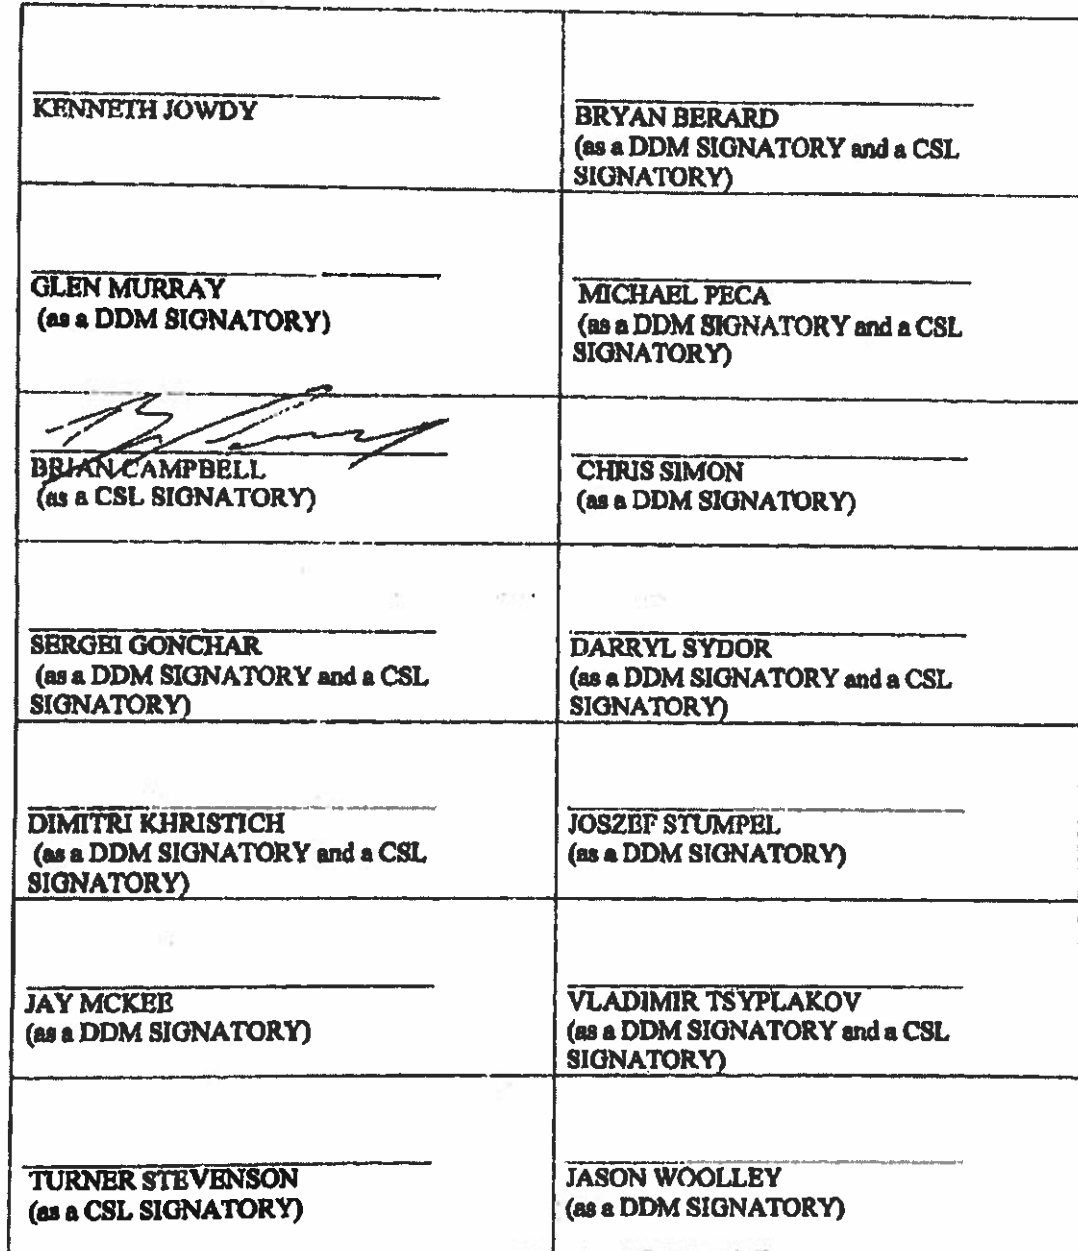 KENNETH JOWDY
BRYAN BERARD
(as a DDM SIGNATORY and a CSL
SIGNATORY)
GLEN MURRAY
(as a DDM SIGNATORY)
MICHAEL PECA
(as a DDM SIGNATORY and a CSL
SIGNATORY)
BRIAN CAMPBELL
(as a CSL SIGNATORY)
CHRIS SIMON
(as a DDM SIGNATORY)
SERGEI GONCHAR
(as a DDM SIGNATORY and a CSL
SIGNATORY)
DARRYL SYDOR
(as a DDM SIGNATORY and a CSL
SIGNATORY)
DIMITRI KHRISTICH
(as a DDM SIGNATORY and a CSL
SIGNATORY)
JOSZEF STUMPEL
(as a DDM SIGNATORY)
JAY MCKEE
(as a DDM SIGNATORY)
VLADIMIR TSYPLAKOV
(as a DDM SIGNATORY and a CSL
SIGNATORY)
TURNER STEVENSON
(as a CSL SIGNATORY)
JASON WOOLLEY
(as a DDM SIGNATORY)